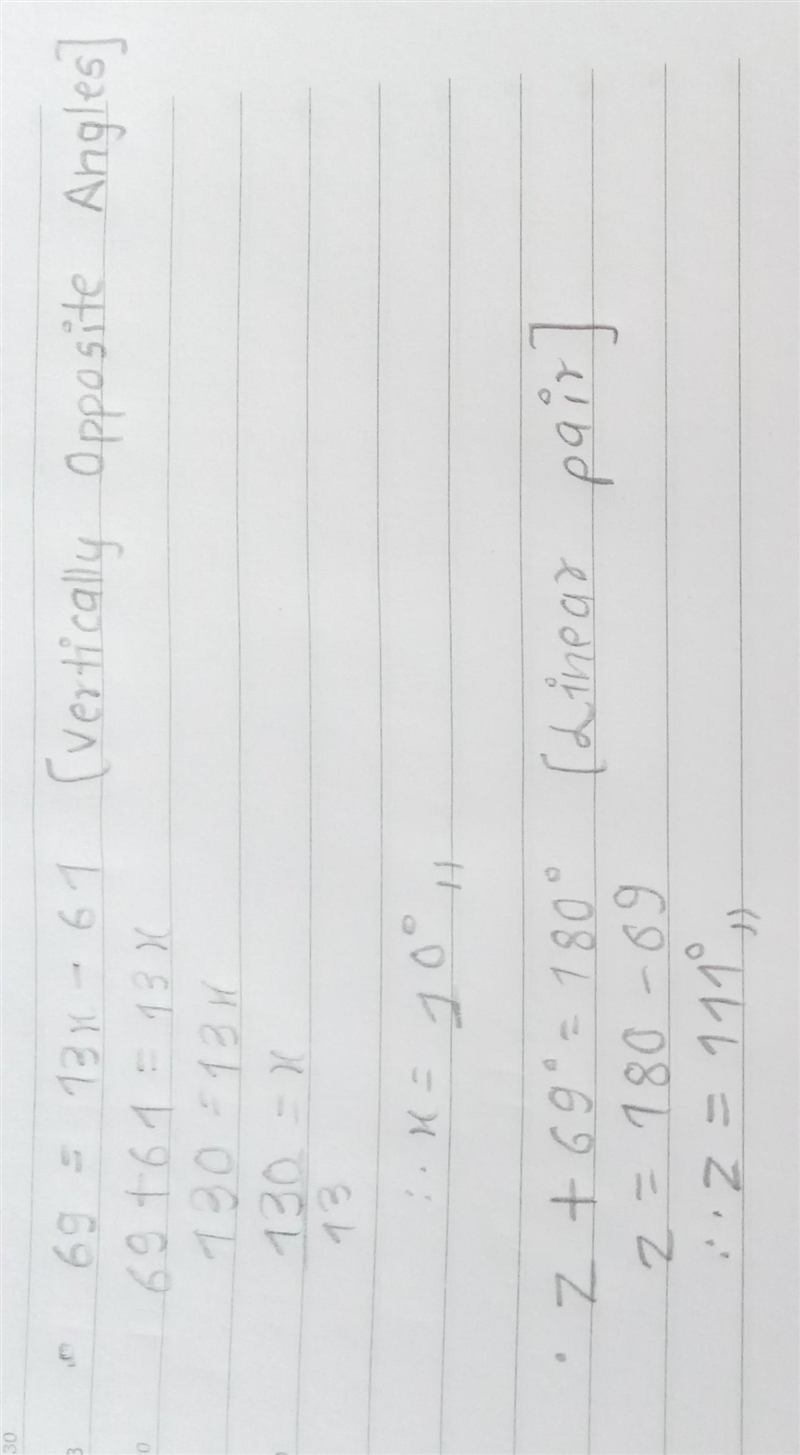 69 = 13x - 61 [Vertically Opposite Angles]
69 + 61 = 13x
130 = 13x
130 = x
13
∴ x = 10° „
· z + 69° = 180° [Linear pair]
z = 180 - 69
∴ z = 111° „